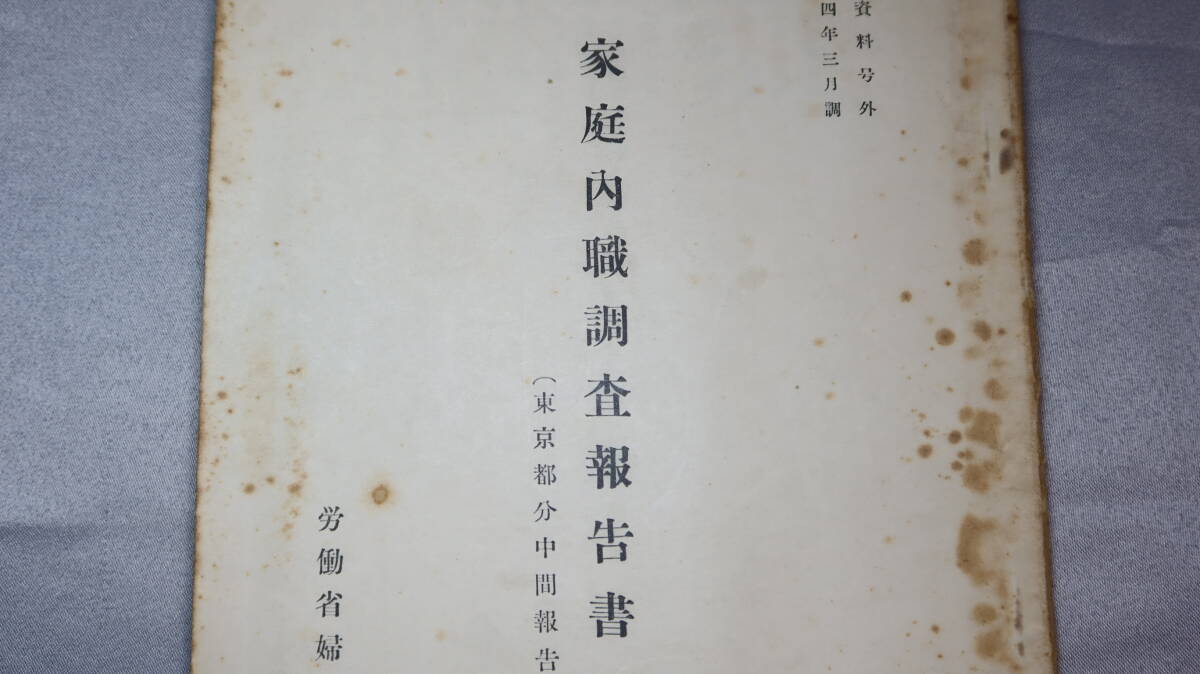 資料号外
四年三月調
家庭内職調査報告書
（東京都分中間報告
労働省婦